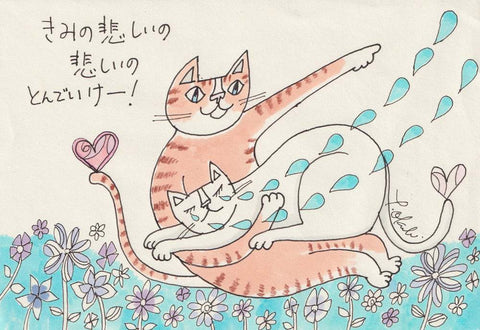 きみの悲しいの
悲しいの
とんでいけー！